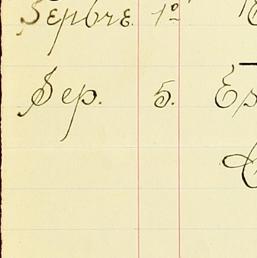 Sepbre. 1º
Sep. 5. Es